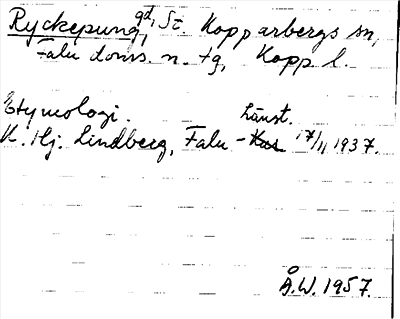 Ryckepung, gd, St. Kopparbergs sn,
Falu doms. n. tg, Kopp. l.
Etymologi.
K. Hj. Lindberg, Falu - Länst. 17/11 1937.
Å.W. 1957.